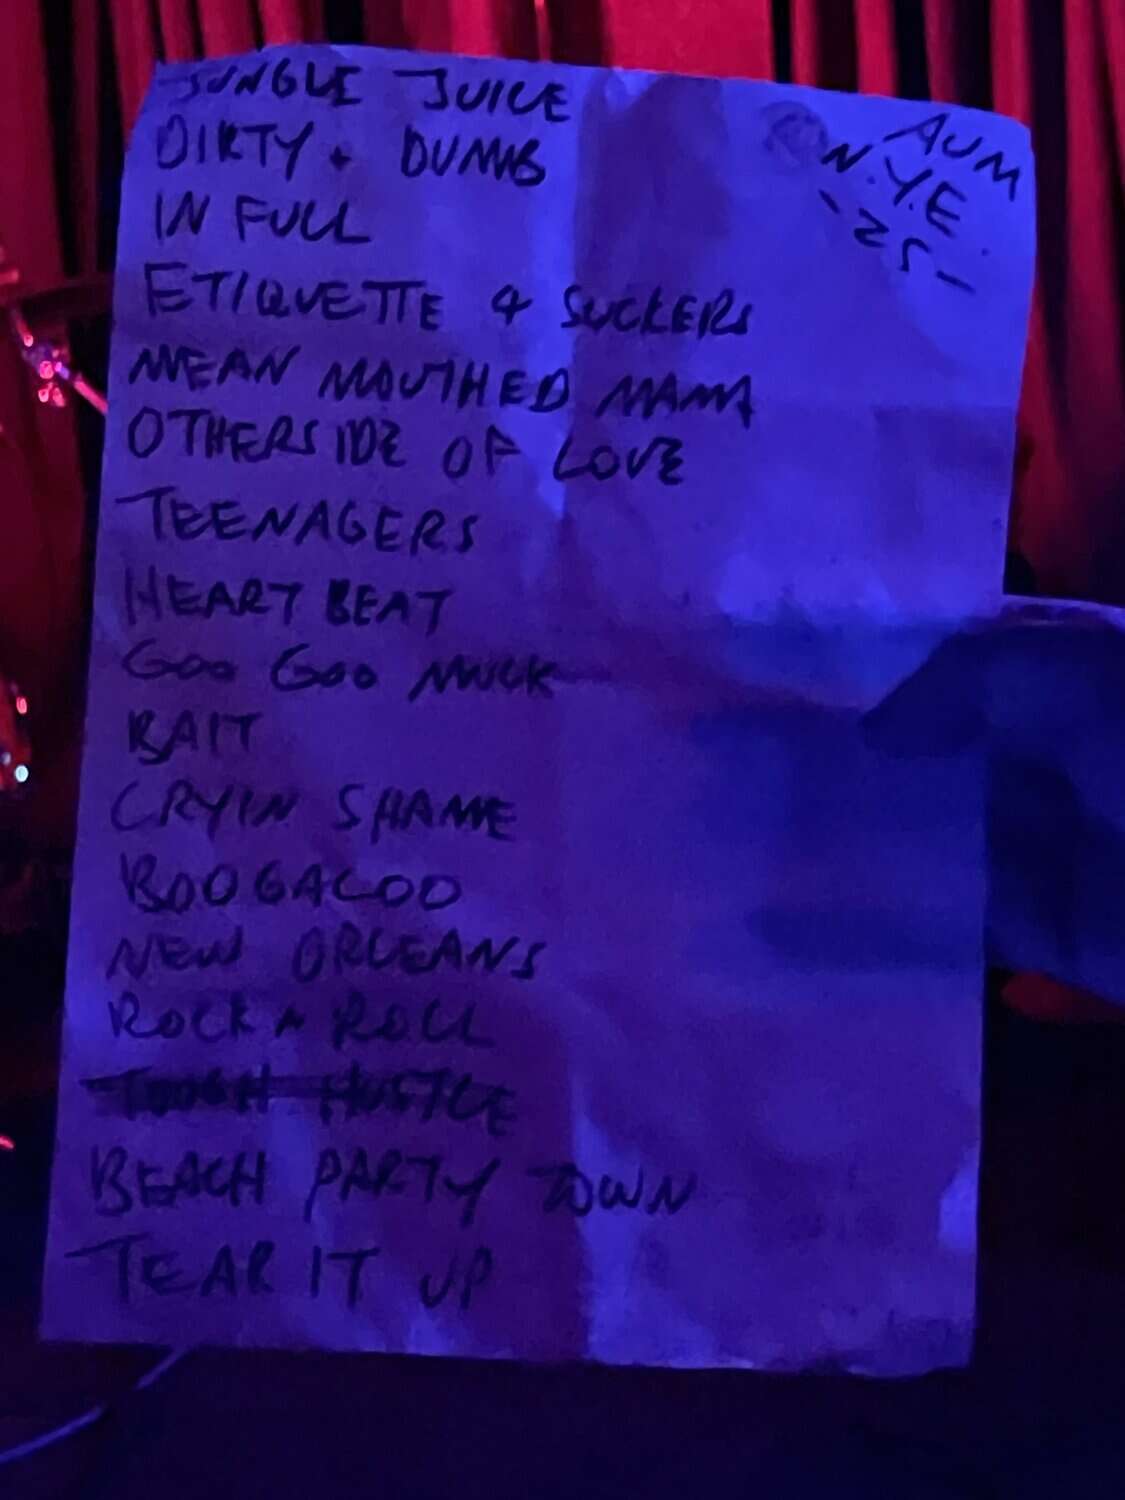 JUNGLE JUICE
DIRTY + DUMB
IN FULL
ETIQUETTE & SUCKERS
MEAN MOUTHED MAMA
OTHERSIDE OF LOVE
TEENAGERS
HEART BEAT
GOO GOO MUCK
BAIT
CRYIN SHAME
BOOGALOO
NEW ORLEANS
ROCK N ROLL
TOUGH HUSTLE
BEACH PARTY TOWN
TEAR IT UP
AUM
N.Y.E.
-25-